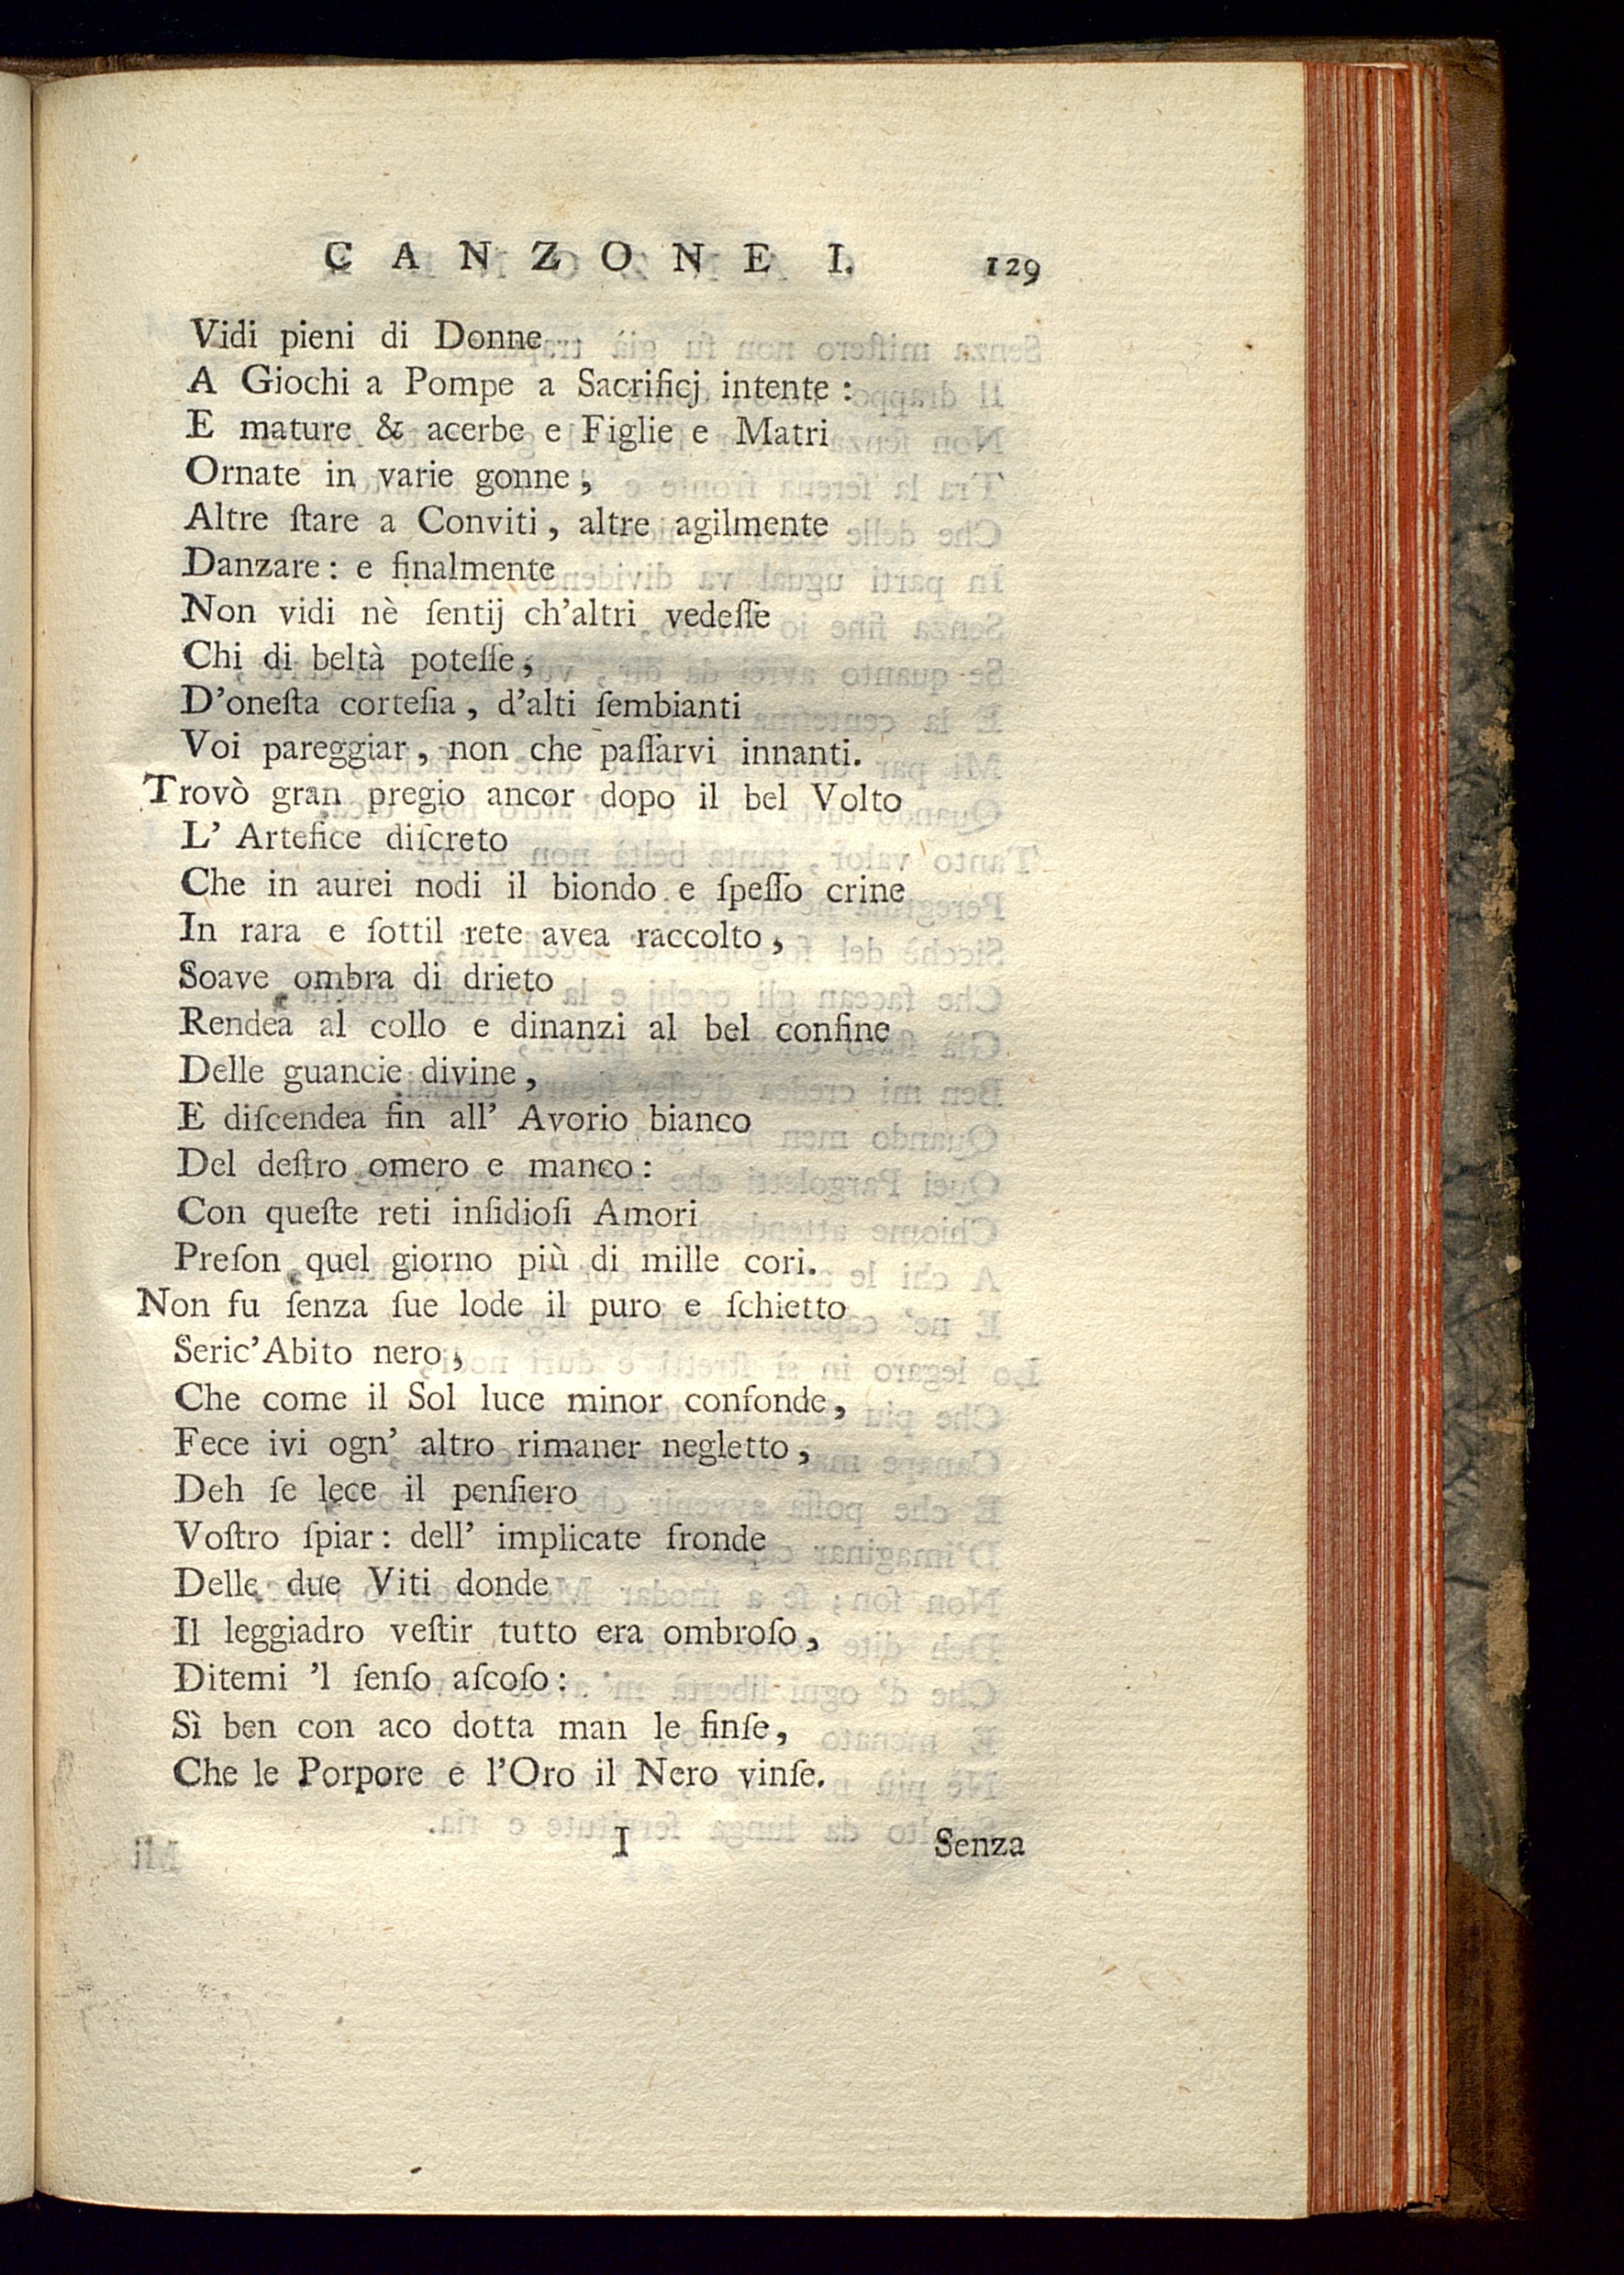 CANZONE I. 129
Vidi pieni di Donne
A Giochi a Pompe a Sacrificj intente:
E mature & acerbe e Figlie e Matri
Ornate in varie gonne;
Altre ſtare a Conviti, altre agilmente
Danzare: e finalmente
Non vidi nè ſentij ch'altri vedeſſe
Chi di beltà poteſſe,
D'oneſta corteſia, d'alti ſembianti
Voi pareggiar, non che paſſarvi innanti.
Trovò gran pregio ancor dopo il bel Volto
L' Artefice diſcreto
Che in aurei nodi il biondo e ſpeſſo crine
In rara e ſottil rete avea raccolto,
Soave ombra di drieto
Rendea al collo e dinanzi al bel confine
Delle guancie divine,
E diſcendea fin all' Avorio bianco
Del deſtro omero e manco:
Con queſte reti inſidioſi Amori
Preſon quel giorno più di mille cori.
Non fu ſenza ſue lode il puro e ſchietto
Seric'Abito nero,
Che come il Sol luce minor confonde,
Fece ivi ogn' altro rimaner negletto,
Deh ſe lece il penſiero
Voſtro ſpiar: dell' implicate fronde
Delle due Viti donde
Il leggiadro veſtir tutto era ombroſo,
Ditemi 'l ſenſo aſcoſo:
Sì ben con aco dotta man le finſe,
Che le Porpore e l'Oro il Nero vinſe.
I Senza